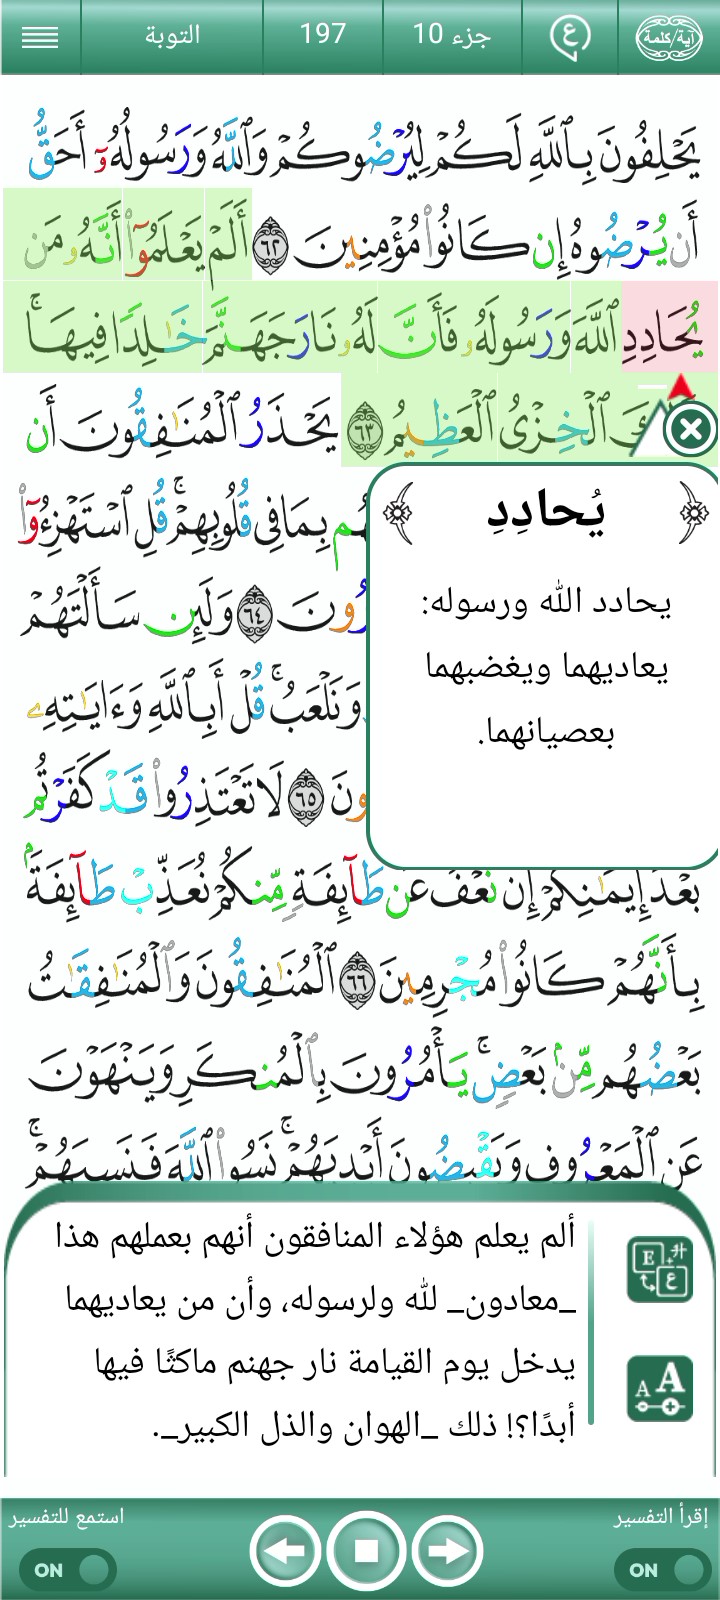 آية/كلمة
ع
جزء 10
197
التوبة
يَحْلِفُونَ بِٱللَّهِ لَكُمْ لِيُرْضُوكُمْ وَٱللَّهُ وَرَسُولُهُۥٓ أَحَقُّ
أَن يُرْضُوهُ إِن كَانُوا۟ مُؤْمِنِينَ ٦٢ أَلَمْ يَعْلَمُوٓا۟ أَنَّهُۥ مَن
يُحَادِدِ ٱللَّهَ وَرَسُولَهُۥ فَأَنَّ لَهُۥ نَارَ جَهَنَّمَ خَـٰلِدًا فِيهَا ۚ
ٱلْخِزْىُ ٱلْعَظِيمُ ٦٣ يَحْذَرُ ٱلْمُنَـٰفِقُونَ أَن
بِمَا فِى قُلُوبِهِمْ ۚ قُلِ ٱسْتَهْزِءُوٓا۟
٦٤ وَلَئِن سَأَلْتَهُمْ
وَنَلْعَبُ ۚ قُلْ أَبِٱللَّهِ وَءَايَـٰتِهِۦ
٦٥ لَا تَعْتَذِرُوا۟ قَدْ كَفَرْتُم
بَعْدَ إِيمَـٰنِكُمْ إِن نَّعْفُ عَن طَآئِفَةٍ مِّنكُمْ نُعَذِّبْ طَآئِفَةًۢ
بِأَنَّهُمْ كَانُوا۟ مُجْرِمِينَ ٦٦ ٱلْمُنَـٰفِقُونَ وَٱلْمُنَـٰفِقَـٰتُ
بَعْضُهُم مِّنۢ بَعْضٍ ۚ يَأْمُرُونَ بِٱلْمُنكَرِ وَيَنْهَوْنَ
عَنِ ٱلْمَعْرُوفِ وَيَقْبِضُونَ أَيْدِيَهُمْ ۚ نَسُوا۟ ٱللَّهَ فَنَسِيَهُمْ ۚ
يُحادِدِ
يحادد الله ورسوله:
يعاديهما ويغضبهما
بعصيانهما.
ألم يعلم هؤلاء المنافقون أنهم بعملهم هذا
_معادون_ لله ولرسوله، وأن من يعاديهما
يدخل يوم القيامة نار جهنم ماكثًا فيها
أبدًا؟! ذلك _الهوان والذل الكبير_.
إقرأ التفسير
ON
استمع للتفسير
ON